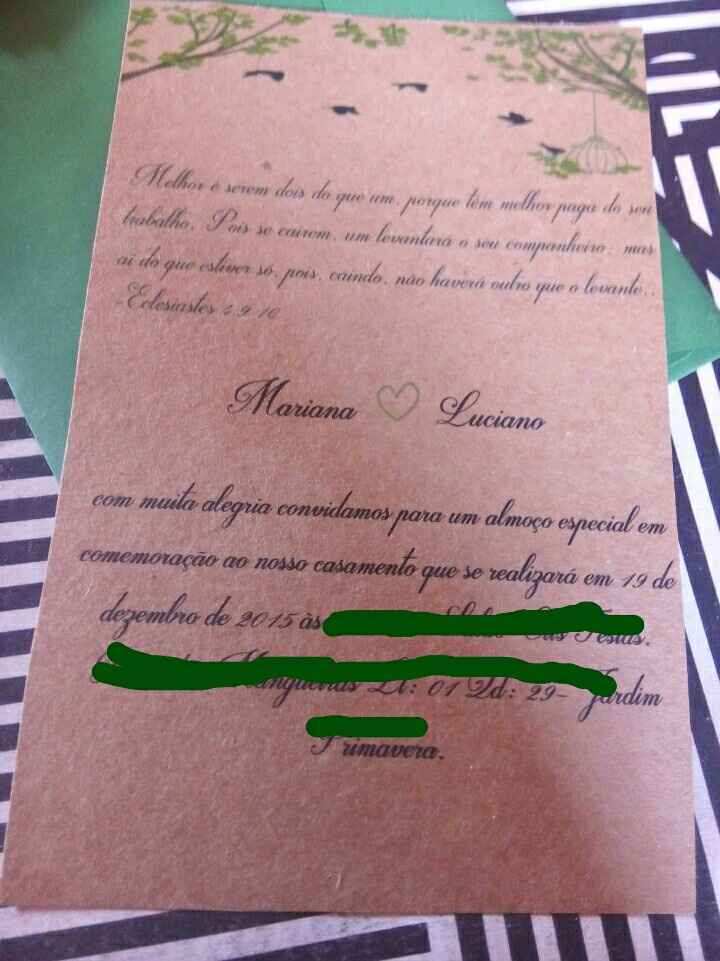 Melhor é serem dois do que um, porque têm melhor paga do seu
trabalho. Pois se cairem, um levantará o seu companheiro; mas
ai do que estiver só, pois, caindo, não haverá outro que o levante..
-Eclesiastes 4:9-10
Mariana Luciano
com muita alegria convidamos para um almoço especial em
comemoração ao nosso casamento que se realizará em 19 de
dezembro de 2015 às Festas.
Mangueiras Lt: 01 Qd: 29- Jardim
Primavera.